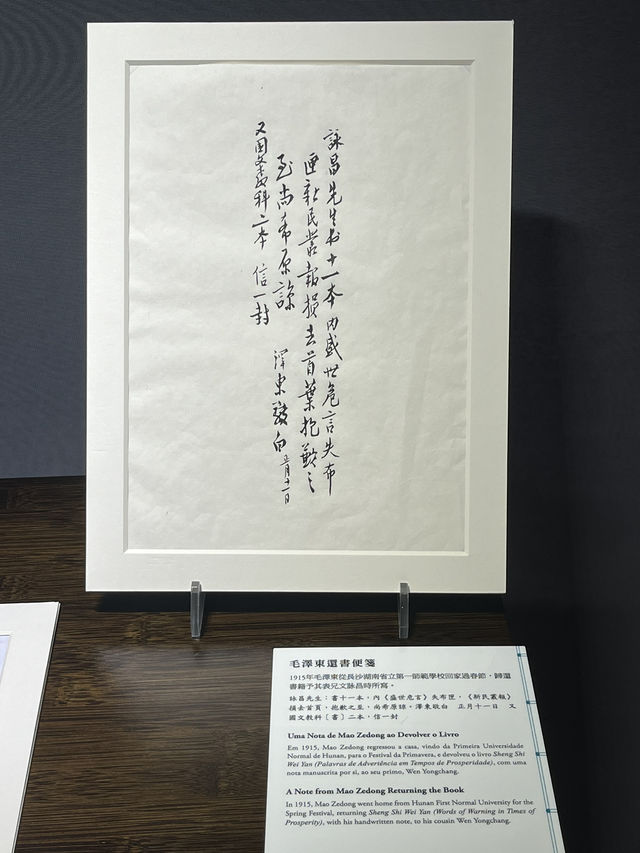 詠昌先生书十一本内盛世危言失布
匣新民丛報損去首葉抱歉之
至尚希原諒
澤東敬白 正月十一日
又国文教科二本 信一封
毛澤東還書便箋
1915年毛澤東從長沙湖南省立第一師範學校回家過春節，歸還
書籍予其表兄文詠昌時所寫。
詠昌先生：書十一本，內《盛世危言》失布匣，《新民叢報》
損去首頁，抱歉之至，尚希原諒。澤東敬白 正月十一日 又
國文教科［書］二本，信一封
Uma Nota de Mao Zedong ao Devolver o Livro
Em 1915, Mao Zedong regressou a casa, vindo da Primeira Universidade
Normal de Hunan, para o Festival da Primavera, e devolveu o livro Sheng Shi
Wei Yan (Palavras de Advertência em Tempos de Prosperidade), com uma
nota manuscrita por si, ao seu primo, Wen Yongchang.
A Note from Mao Zedong Returning the Book
In 1915, Mao Zedong went home from Hunan First Normal University for the
Spring Festival, returning Sheng Shi Wei Yan (Words of Warning in Times of
Prosperity), with his handwritten note, to his cousin Wen Yongchang.